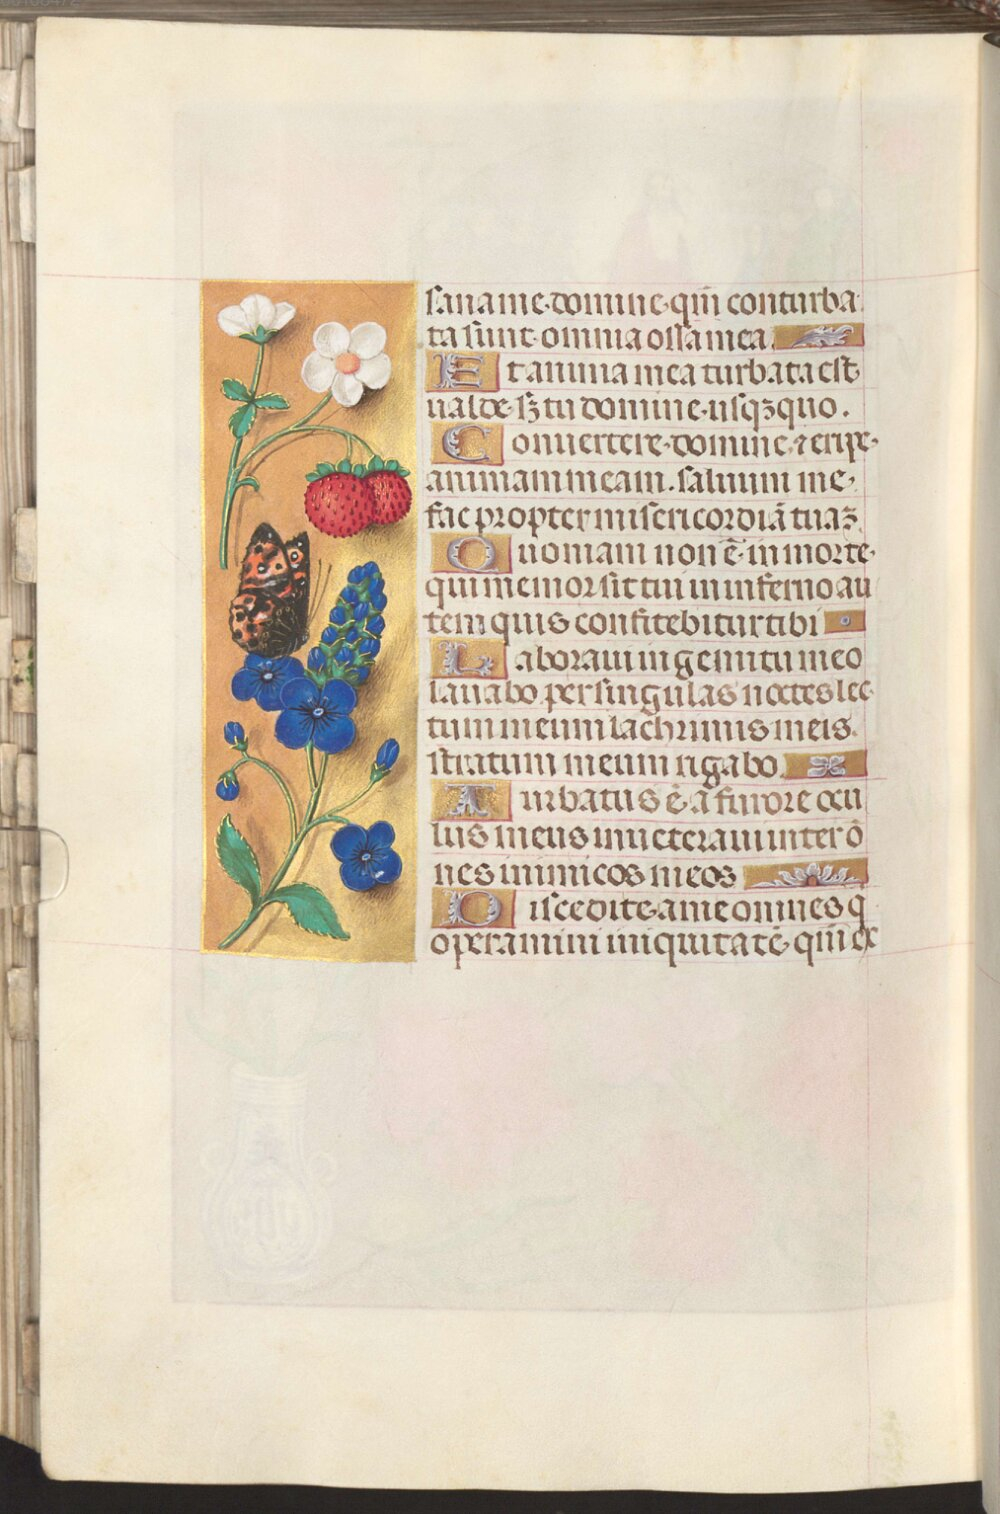 sana me domine qm̄ conturba
ta sunt omnia ossa mea
Et anima mea turbata est
ualde sꝫ tu domine usqꝫ quo.
Conuertere domine ⁊ eripe
animam meam. saluum me
fac propter misericordiā tuaꝫ
Quoniam non ē in morte
qui memor sit tui in inferno au
tem quis confitebitur tibi
Laboraui in gemitu meo
lauabo per singulas noctes lec
tum meum lachrimis meis.
stratum meum rigabo
Turbatus ē a furore ocu
lus meus inueteraui inter ō
nes inimicos meos
Discedite a me omnes q
operamini iniquitatē qm̄ ex